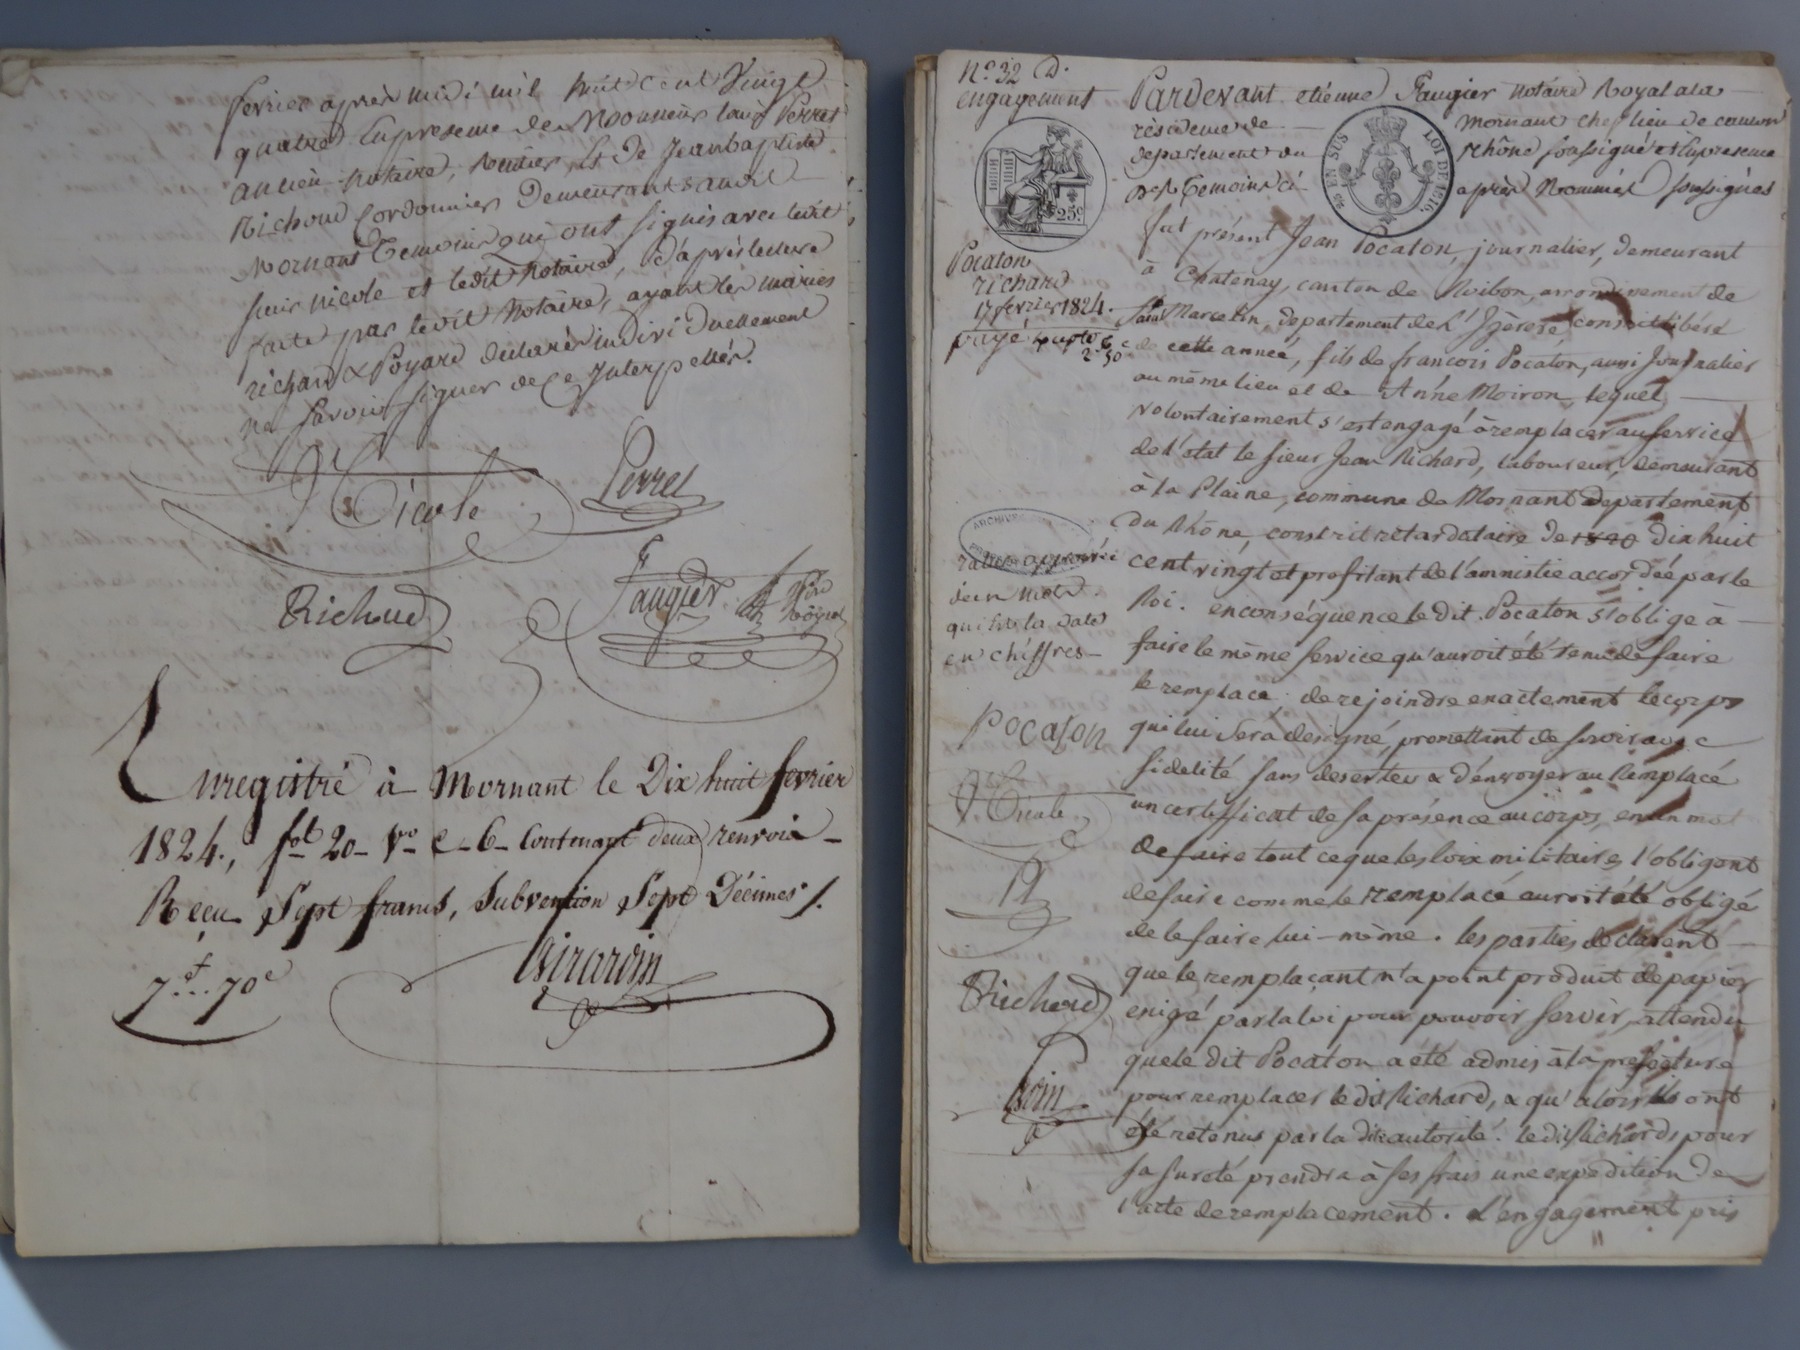 fevrier après midi mil huit cent vingt
quatre En presence de Monsieur louis Perret
ancien notaire, rentier et de Jean baptiste
Richoud Cordonnier Demeurants audit
Mornant Temoins qui ont signés avec ledit
sieur nicole et ledit Notaire, d'après lecture
faite par ledit Notaire, ayant les mariés
richard & Poyard declarés individuellement
ne savoir signer de ce Interpellés.
Nicole Perret
Richoud Faugier
Enregistré à Mornant le Dix huit fevrier
1824, fol 20 Vo C 6 Contenant deux renvois
Reçu Sept francs, Subvention Sept Décimes
7f..70c
Girardin
No 32 D.
engagement
25c
Pocaton
richard
17 fevrier 1824.
payé
2 50
rature approuvée
d'un mot
qui est la date
en chiffres
Pocaton
Nicole
Richoud
Pardevant etienne Faugier notaire Royal a la
résidence de Mornant chef lieu de canton
departement du rhône soussigné et En presence
des Temoins ci après Nommés soussignés
EN SUS LOI DE 1816.
fut présent Jean Pocaton, journalier, demeurant
à Chatenay, canton de Roibon, arrondissement de
Saint Marcelin, departement de l'Isère, conscrit libéré
de cette année, fils de francois Pocaton, aussi Journalier
au même lieu et de Anne Moiron, lequel
volontairement s'est engagé à remplacer au service
de l'état le sieur Jean Richard, laboureur, demeurant
à la Plaine, commune de Mornant departement
du Rhône, conscrit retardataire de 1820 dix huit
cent vingt et profitant de l'amnistie accordée par le
Roi. en conséquence le dit Pocaton s'oblige à
faire le même service qu'auroit été tenu de faire
le remplacé, de rejoindre exactement le corps
qui lui sera designé, promettant de servir avec
fidelité sans deserter & d'envoyer au Remplacé
un certifficat de sa présence au corps, en un mot
de faire tout ce que les loix militaires l'obligent
de faire comme le remplacé auroit été obligé
de le faire lui-même. les parties déclarent
que le remplaçant n'a point produit de papier
exigé par la loi pour pouvoir servir, attendu
que le dit Pocaton a été admis à la prefecture
pour remplacer le dit Richard, & qu'alors ils ont
été retenus par la dite autorité. le dit Richard pour
sa sureté prendra à ses frais une expedition de
l'acte de remplacement. L'engagement pris